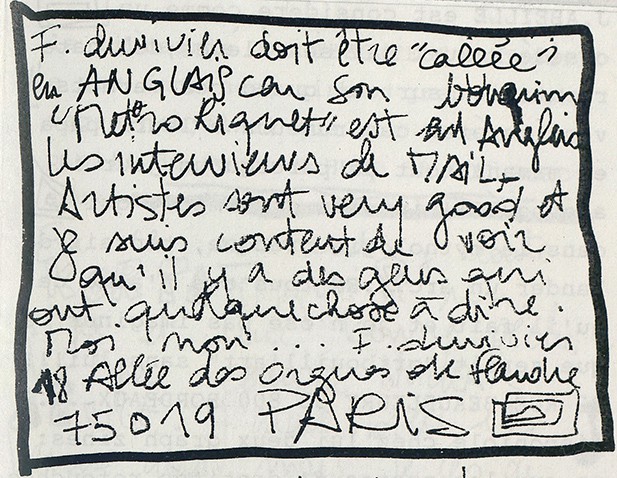 F. duvivier doit être "calée"
en ANGLAIS car son bouquin
"Métro Riquet" est en Anglais
Les interviews de MAIL
Artistes sont very good, et
je suis content de voir
qu'il y a des gens qui
ont quelque chose à dire.
Moi non... F. duvivier
18 Allée des orgues de flandre
75019 PARIS